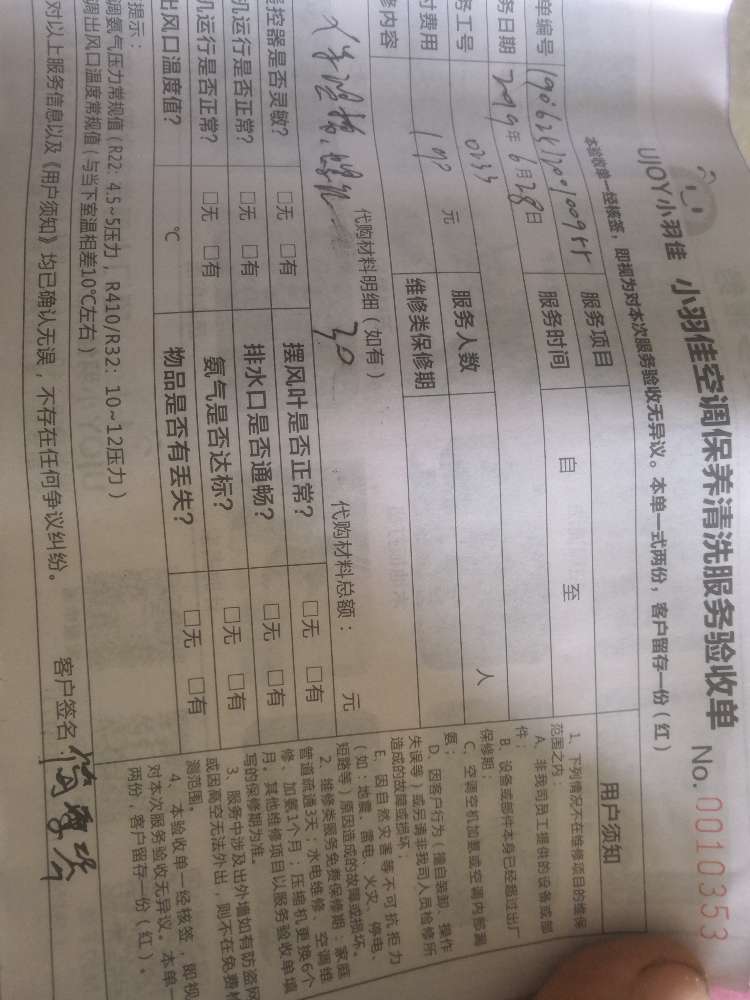 UJOY小羽佳 小羽佳空调保养清洗服务验收单 No. 0010353
本验收单一经核签，即视为对本次服务验收无异议。本单一式两份，客户留存一份（红）
单编号
服务项目
务日期 2019年6月28日
服务时间 自 至
务工号 0233
服务人数 人
付费用 元
维修类保修期
修内容
代购材料明细（如有） 代购材料总额： 元
30
控器是否灵敏？ □无 □有 摆风叶是否正常？ □无 □有
机运行是否正常？ □无 □有 排水口是否通畅？ □无 □有
机运行是否正常？ □无 □有 氨气是否达标？ □无 □有
出风口温度值？ ℃ 物品是否有丢失？ □无 □有
提示：
调氨气压力常规值（R22: 4.5~5压力，R410/R32: 10~12压力）
调出风口温度常规值（与当下室温相差10℃左右）
对以上服务信息以及《用户须知》均已确认无误，不存在任何争议纠纷。
客户签名：
用户须知
1、下列情况不在维修项目的维保
范围之内：
A、非我司员工提供的设备或部
件；
B、设备或部件本身已经超过出厂
保修期；
C、空调空机加氨或空调内部漏
氨；
D、因客户行为（擅自装卸、操作
失误等）或另请非我司人员检修所
造成的故障或损坏；
E、因自然灾害等不可抗拒力
（如：地震、雷电、火灾、停电、
短路等）原因造成的故障或损坏。
2、维修类服务免费保修期：家庭
管道疏通3天；水电维修、空调维
修、加氨1个月；压缩机更换6个
月。其他维修项目以服务验收单填
写的保修期为准。
3、服务中涉及出外墙如有防盗网
或因高空无法外出，则不在免费检
测范围。
4、本验收单一经核签，即视
对本次服务验收无异议。本单一
两份，客户留存一份（红）。